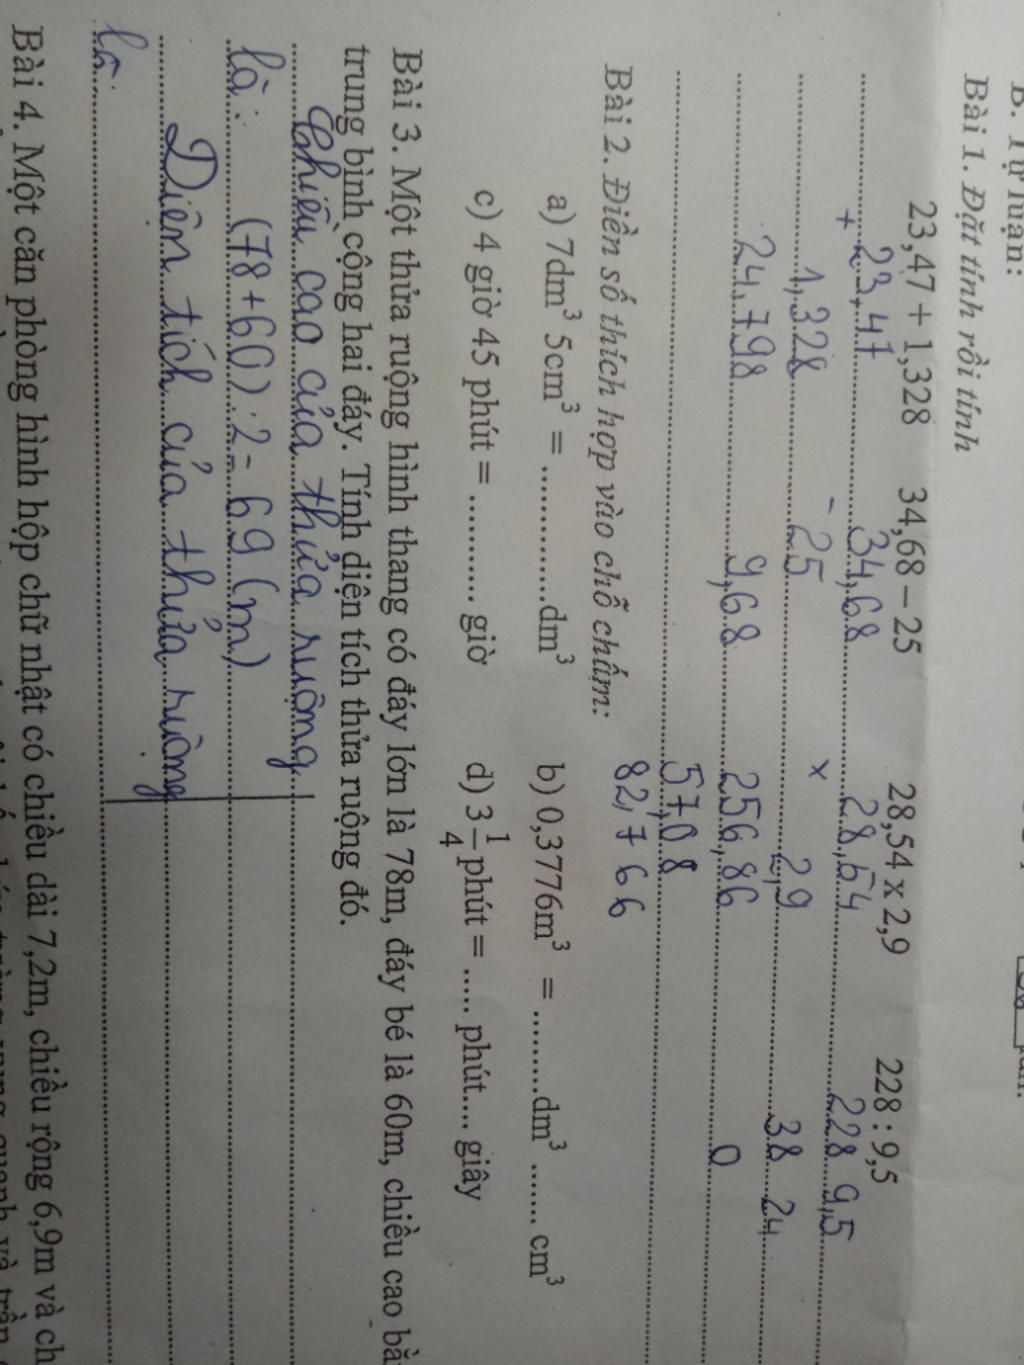 B. Tự luận:
Bài 1. Đặt tính rồi tính
23,47 + 1,328 34,68 – 25 28,54 x 2,9 228 : 9,5
+ 23,47 34,68 28,54 228 9,5
1,328 - 25 x 2,9 38 24
24,798 9,68 256,86 0
57,08
82,766
Bài 2. Điền số thích hợp vào chỗ chấm:
a) 7dm³ 5cm³ = ............dm³ b) 0,3776m³ = .........dm³ ...... cm³
c) 4 giờ 45 phút = .......... giờ d) 3 1/4 phút = ..... phút.... giây
Bài 3. Một thửa ruộng hình thang có đáy lớn là 78m, đáy bé là 60m, chiều cao bằ
trung bình cộng hai đáy. Tính diện tích thửa ruộng đó.
Chiều cao của thửa ruộng
là: (78+60):2=69(m)
Diện tích của thửa ruộng
là:
Bài 4. Một căn phòng hình hộp chữ nhật có chiều dài 7,2m, chiều rộng 6,9m và ch